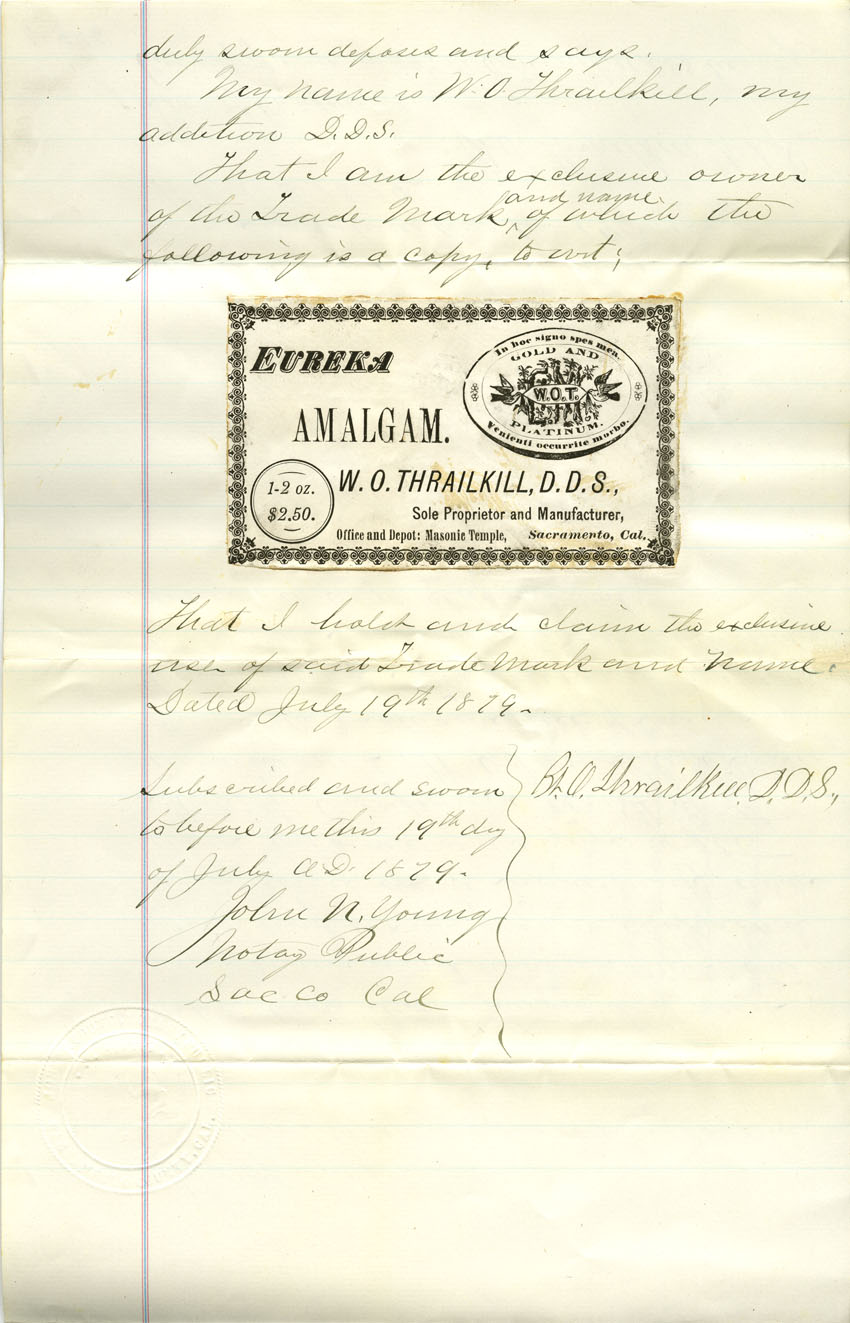 duly sworn deposes and says.
My name is W. O. Thrailkill, my
addition D.D.S.
That I am the exclusive owner
and name
of the Trade Mark, of which the
following is a copy, to wit;
EUREKA
AMALGAM.
In hoc signo spes mea.
GOLD AND
W.O.T.
PLATINUM.
Venienti occurrite morbo.
1-2 oz.
$2.50.
W. O. THRAILKILL, D. D. S.,
Sole Proprietor and Manufacturer,
Office and Depot: Masonic Temple, Sacramento, Cal.
That I hold and claim the exclusive
use of said Trade Mark and Name.
Dated July 19th 1879.
Subscribed and sworn
to before me this 19th day
of July A.D. 1879.
John N. Young
Notay Public
Sac Co Cal
W. O. Thrailkill, D.D.S.,